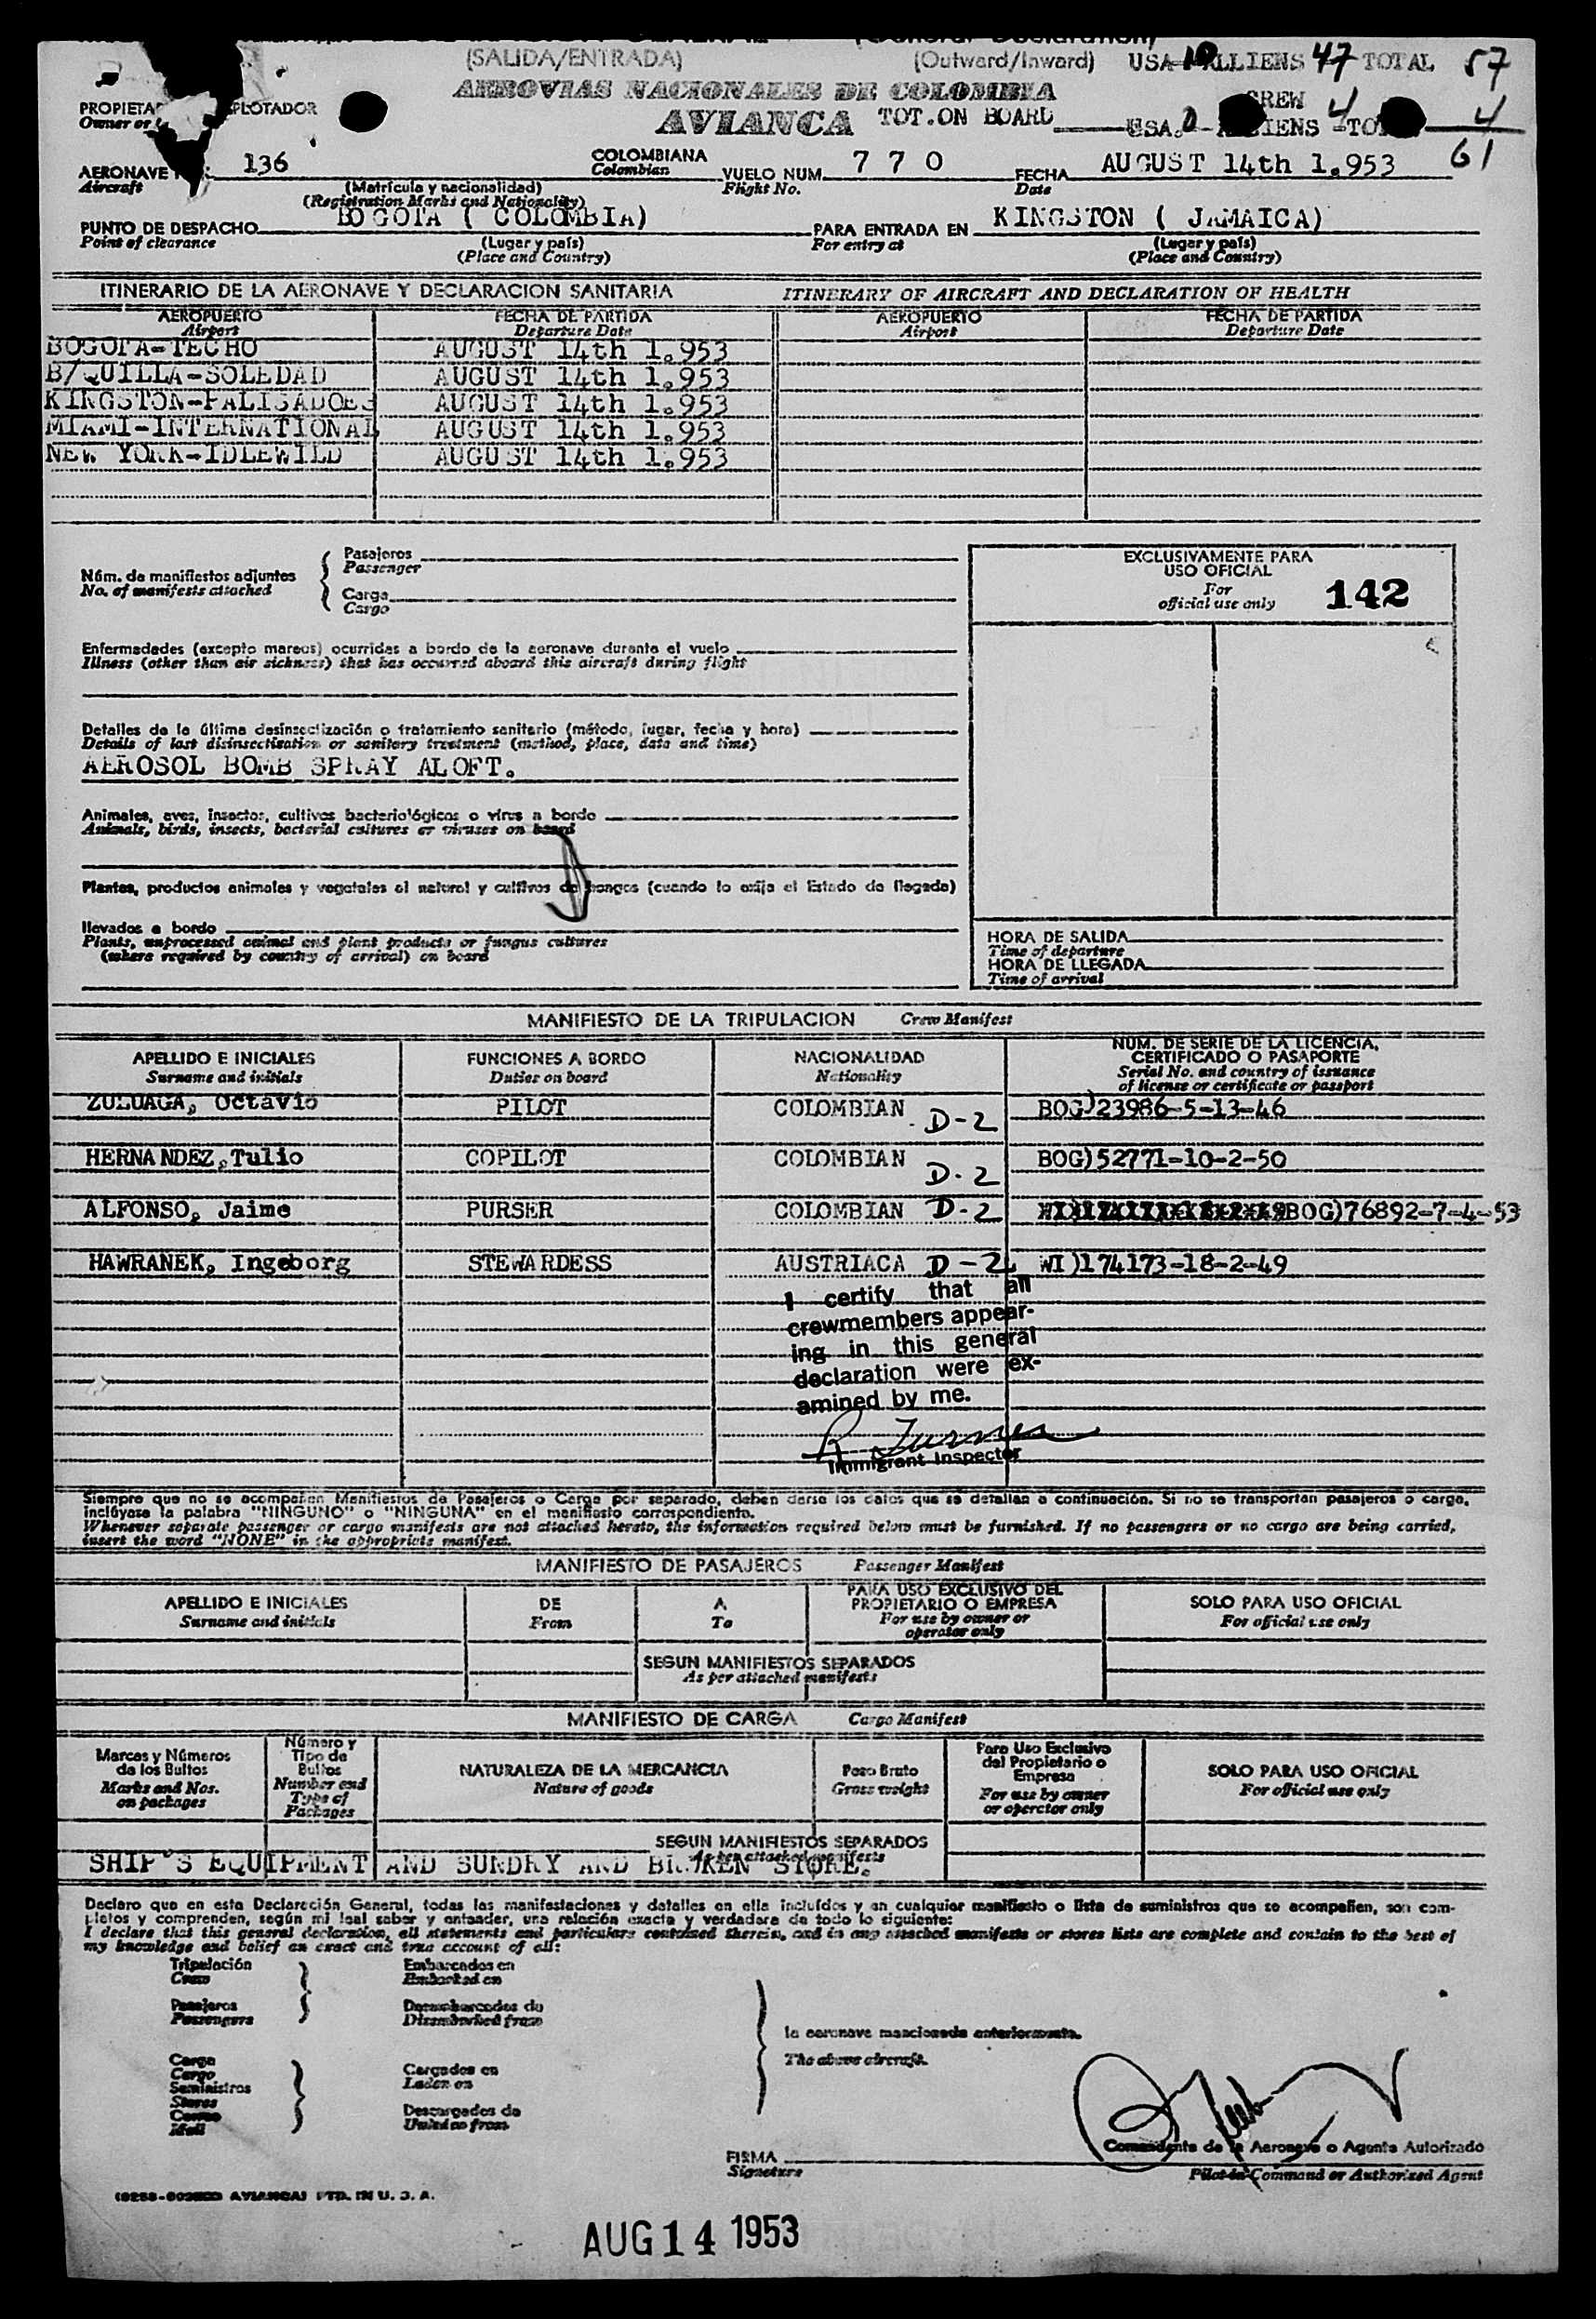 (SALIDA/ENTRADA) (Outward/Inward) USA 10 ALLIENS 47 TOTAL 57
AEROVIAS NACIONALES DE COLOMBIA
CREW 4
AVIANCA TOT.ON BOARD USA. 0 4 4
61
PROPIETA PLOTADOR
Owner or
AERONAVE 136 COLOMBIANA VUELO NUM. 7 7 0 FECHA AUGUST 14th 1.953
Aircraft (Matrícula y nacionalidad) Colombian Flight No. Date
(Registration Marks and Nationality)
PUNTO DE DESPACHO BOGOTA ( COLOMBIA) PARA ENTRADA EN KINGSTON ( JAMAICA)
Point of clearance (Lugar y país) For entry at (Lugar y país)
(Place and Country) (Place and Country)
ITINERARIO DE LA AERONAVE Y DECLARACION SANITARIA ITINERARY OF AIRCRAFT AND DECLARATION OF HEALTH
AEROPUERTO FECHA DE PARTIDA AEROPUERTO FECHA DE PARTIDA
Airport Departure Date Airport Departure Date
BOGOTA-TECHO AUGUST 14th 1.953
B/QUILLA-SOLEDAD AUGUST 14th 1.953
KINGSTON-PALISADOES AUGUST 14th 1.953
MIAMI-INTERNATIONAL AUGUST 14th 1.953
NEW YORK-IDLEWILD AUGUST 14th 1.953
Núm. de manifiestos adjuntos
No. of manifests attached
Pasajeros
Passenger
Carga
Cargo
EXCLUSIVAMENTE PARA
USO OFICIAL
For
official use only
142
Enfermedades (excepto mareos) ocurridas a bordo de la aeronave durante el vuelo
Illness (other than air sickness) that has occurred aboard this aircraft during flight
Detalles de la última desinsectización o tratamiento sanitario (método, lugar, fecha y hora)
Details of last disinsectisation or sanitary treatment (method, place, date and time)
AEROSOL BOMB SPRAY ALOFT.
Animales, aves, insectos, cultivos bacteriológicos o virus a bordo
Animals, birds, insects, bacterial cultures or viruses on board
Plantas, productos animales y vegetales al natural y cultivos de hongos (cuando lo exija el Estado de llegada)
llevados a bordo
Plants, unprocessed animal and plant products or fungus cultures
(where required by country of arrival) on board
HORA DE SALIDA
Time of departure
HORA DE LLEGADA
Time of arrival
MANIFIESTO DE LA TRIPULACION Crew Manifest
APELLIDO E INICIALES FUNCIONES A BORDO NACIONALIDAD NUM. DE SERIE DE LA LICENCIA,
CERTIFICADO O PASAPORTE
Surname and initials Duties on board Nationality Serial No. and country of issuance
of license or certificate or passport
ZULUAGA, Octavio PILOT COLOMBIAN D-2 BOG)23986-5-13-46
HERNANDEZ,Tulio COPILOT COLOMBIAN D-2 BOG)52771-10-2-50
ALFONSO, Jaime PURSER COLOMBIAN D-2 BOG)76892-7-4-53
HAWRANEK, Ingeborg STEWARDESS AUSTRIACA D-2 WI)174173-18-2-49
I certify that all
crewmembers appear-
ing in this general
declaration were ex-
amined by me.
R Turner
Immigrant Inspector
Siempre que no se acompañen Manifiestos de Pasajeros o Carga por separado, deben darse los datos que se detallan a continuación. Si no se transportan pasajeros o carga,
inclúyase la palabra "NINGUNO" o "NINGUNA" en el manifiesto correspondiente.
Whenever separate passenger or cargo manifests are not attached hereto, the information required below must be furnished. If no passengers or no cargo are being carried,
insert the word "NONE" in the appropriate manifest.
MANIFIESTO DE PASAJEROS Passenger Manifest
APELLIDO E INICIALES DE A PARA USO EXCLUSIVO DEL
PROPIETARIO O EMPRESA SOLO PARA USO OFICIAL
Surname and initials From To For use by owner or
operator only For official use only
SEGUN MANIFIESTOS SEPARADOS
As per attached manifests
MANIFIESTO DE CARGA Cargo Manifest
Marcas y Números
de los Bultos
Marks and Nos.
on packages
Número y
Tipo de
Bultos
Number and
Type of
Packages
NATURALEZA DE LA MERCANCIA
Nature of goods
Peso Bruto
Gross weight
Para Uso Exclusivo
del Propietario o
Empresa
For use by owner
or operator only
SOLO PARA USO OFICIAL
For official use only
SEGUN MANIFIESTOS SEPARADOS
As per attached manifests
SHIP'S EQUIPMENT AND SUNDRY AND BROKEN STORE.
Declaro que en esta Declaración General, todas las manifestaciones y detalles en ella incluídos y en cualquier manifiesto o lista de suministros que se acompañen, son com-
pletos y comprenden, según mi leal saber y entender, una relación exacta y verdadera de todo lo siguiente:
I declare that this general declaration, all statements and particulars contained therein, and in any attached manifests or stores lists are complete and contain to the best of
my knowledge and belief an exact and true account of all:
Tripulación
Crew
Pasajeros
Passengers
Embarcados en
Embarked on
Desembarcados de
Disembarked from
Carga
Cargo
Suministros
Stores
Correo
Mail
Cargados en
Laden on
Descargados de
Unladen from
la aeronave mencionada anteriormente.
The above aircraft.
FIRMA
Signature
Comandante de la Aeronave o Agente Autorizado
Pilot-in-Command or Authorized Agent
AVIANCA) PTD. IN U. S. A.
AUG 14 1953